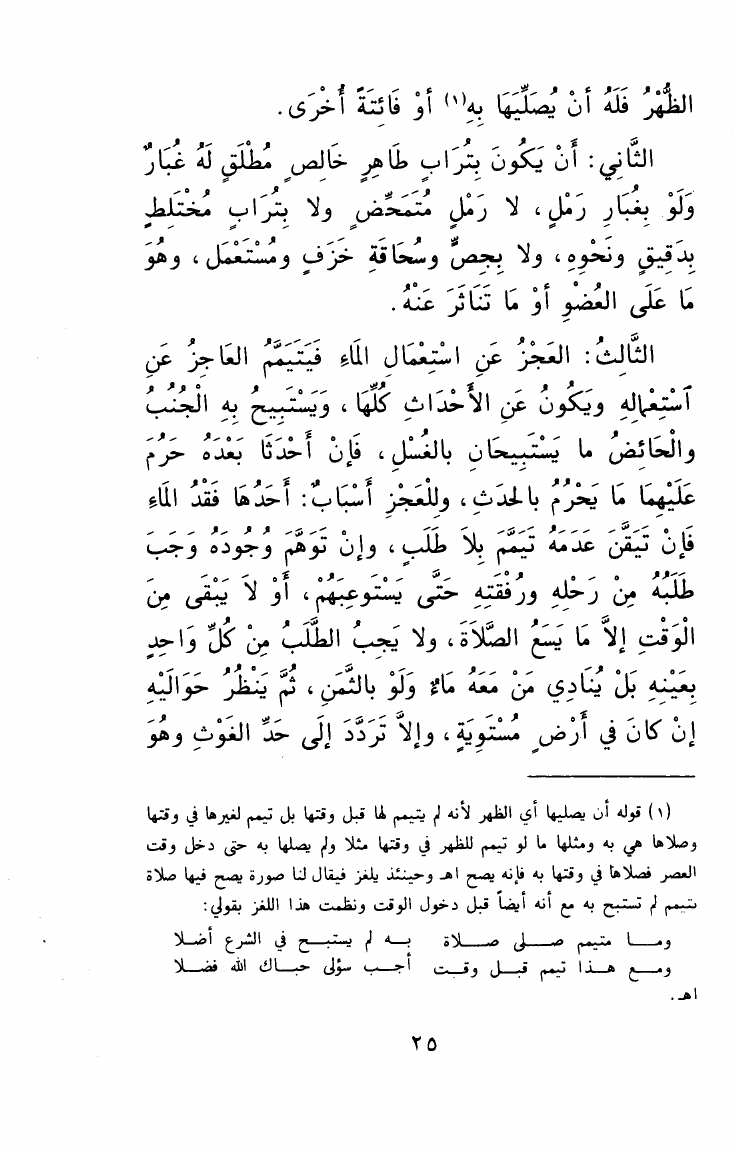 الظُّهْرُ فَلَهُ أَنْ يُصَلِّيَهَا بِهِ(١) أَوْ فَائِتَةً أُخْرَى.
الثَّانِي: أَنْ يَكُونَ بِتُرَابٍ طَاهِرٍ خَالِصٍ مُطْلَقٍ لَهُ غُبَارٌ
وَلَوْ بِغُبَارِ رَمْلٍ، لَا رَمْلٍ مُتَمَحِّضٍ ولا بِتُرَابٍ مُخْتَلِطٍ
بِدَقِيقٍ ونَحْوِهِ، ولا بِجِصٍّ وسُحَاقَةِ خَزَفٍ ومُسْتَعْمَلٍ، وهُوَ
مَا عَلَى العُضْوِ أَوْ مَا تَنَاثَرَ عَنْهُ.
الثَّالِثُ: العَجْزُ عَنِ اسْتِعْمَالِ المَاءِ فَيَتَيَمَّمُ العَاجِزُ عَنِ
آسْتِعْمَالِهِ ويَكُونُ عَنِ الأَحْدَاثِ كُلِّهَا، وَيَسْتَبِيحُ بِهِ الْجُنُبُ
والْحَائِضُ ما يَسْتَبِيحَانِ بالغُسْلِ، فَإِنْ أَحْدَثَا بَعْدَهُ حَرُمَ
عَلَيْهِمَا مَا يَحْرُمُ بالحَدَثِ، وللْعَجْزِ أَسْبَابٌ: أَحَدُهَا فَقْدُ المَاءِ
فَإِنْ تَيَقَّنَ عَدَمَهُ تَيَمَّمَ بِلاَ طَلَبٍ، وإِنْ تَوَهَّمَ وُجُودَهُ وَجَبَ
طَلَبُهُ مِنْ رَحْلِهِ ورُفْقَتِهِ حَتَّى يَسْتَوعِبَهُمْ، أَوْ لاَ يَبْقَى مِنَ
الْوَقْتِ إِلاَّ مَا يَسَعُ الصَّلاَةَ، ولا يَجِبُ الطَّلَبُ مِنْ كُلِّ وَاحِدٍ
بِعَيْنِهِ بَلْ يُنَادِي مَنْ مَعَهُ مَاءٌ وَلَوْ بالثَّمَنِ، ثُمَّ يَنْظُرُ حَوَالَيْهِ
إِنْ كَانَ فِي أَرْضٍ مُسْتَوِيَةٍ، وإِلاَّ تَرَدَّدَ إِلَى حَدِّ الغَوْثِ وهُوَ
(١) قوله أن يصليها أي الظهر لأنه لم يتيمم لها قبل وقتها بل تيمم لغيرها في وقتها
وصلاها هي به ومثلها ما لو تيمم للظهر في وقتها مثلا ولم يصلها به حتى دخل وقت
العصر فصلاها في وقتها به فإنه يصح اهـ وحينئذ يلغز فيقال لنا صورة يصح فيها صلاة
بتيمم لم تستبح به مع أنه أيضاً قبل دخول الوقت ونظمت هذا اللغز بقولي:
وما متيمم صلى صلاة به لم يستبح في الشرع أصلا
ومع هذا تيمم قبل وقت أجب سؤلى حباك الله فضلا
اهـ.
٢٥